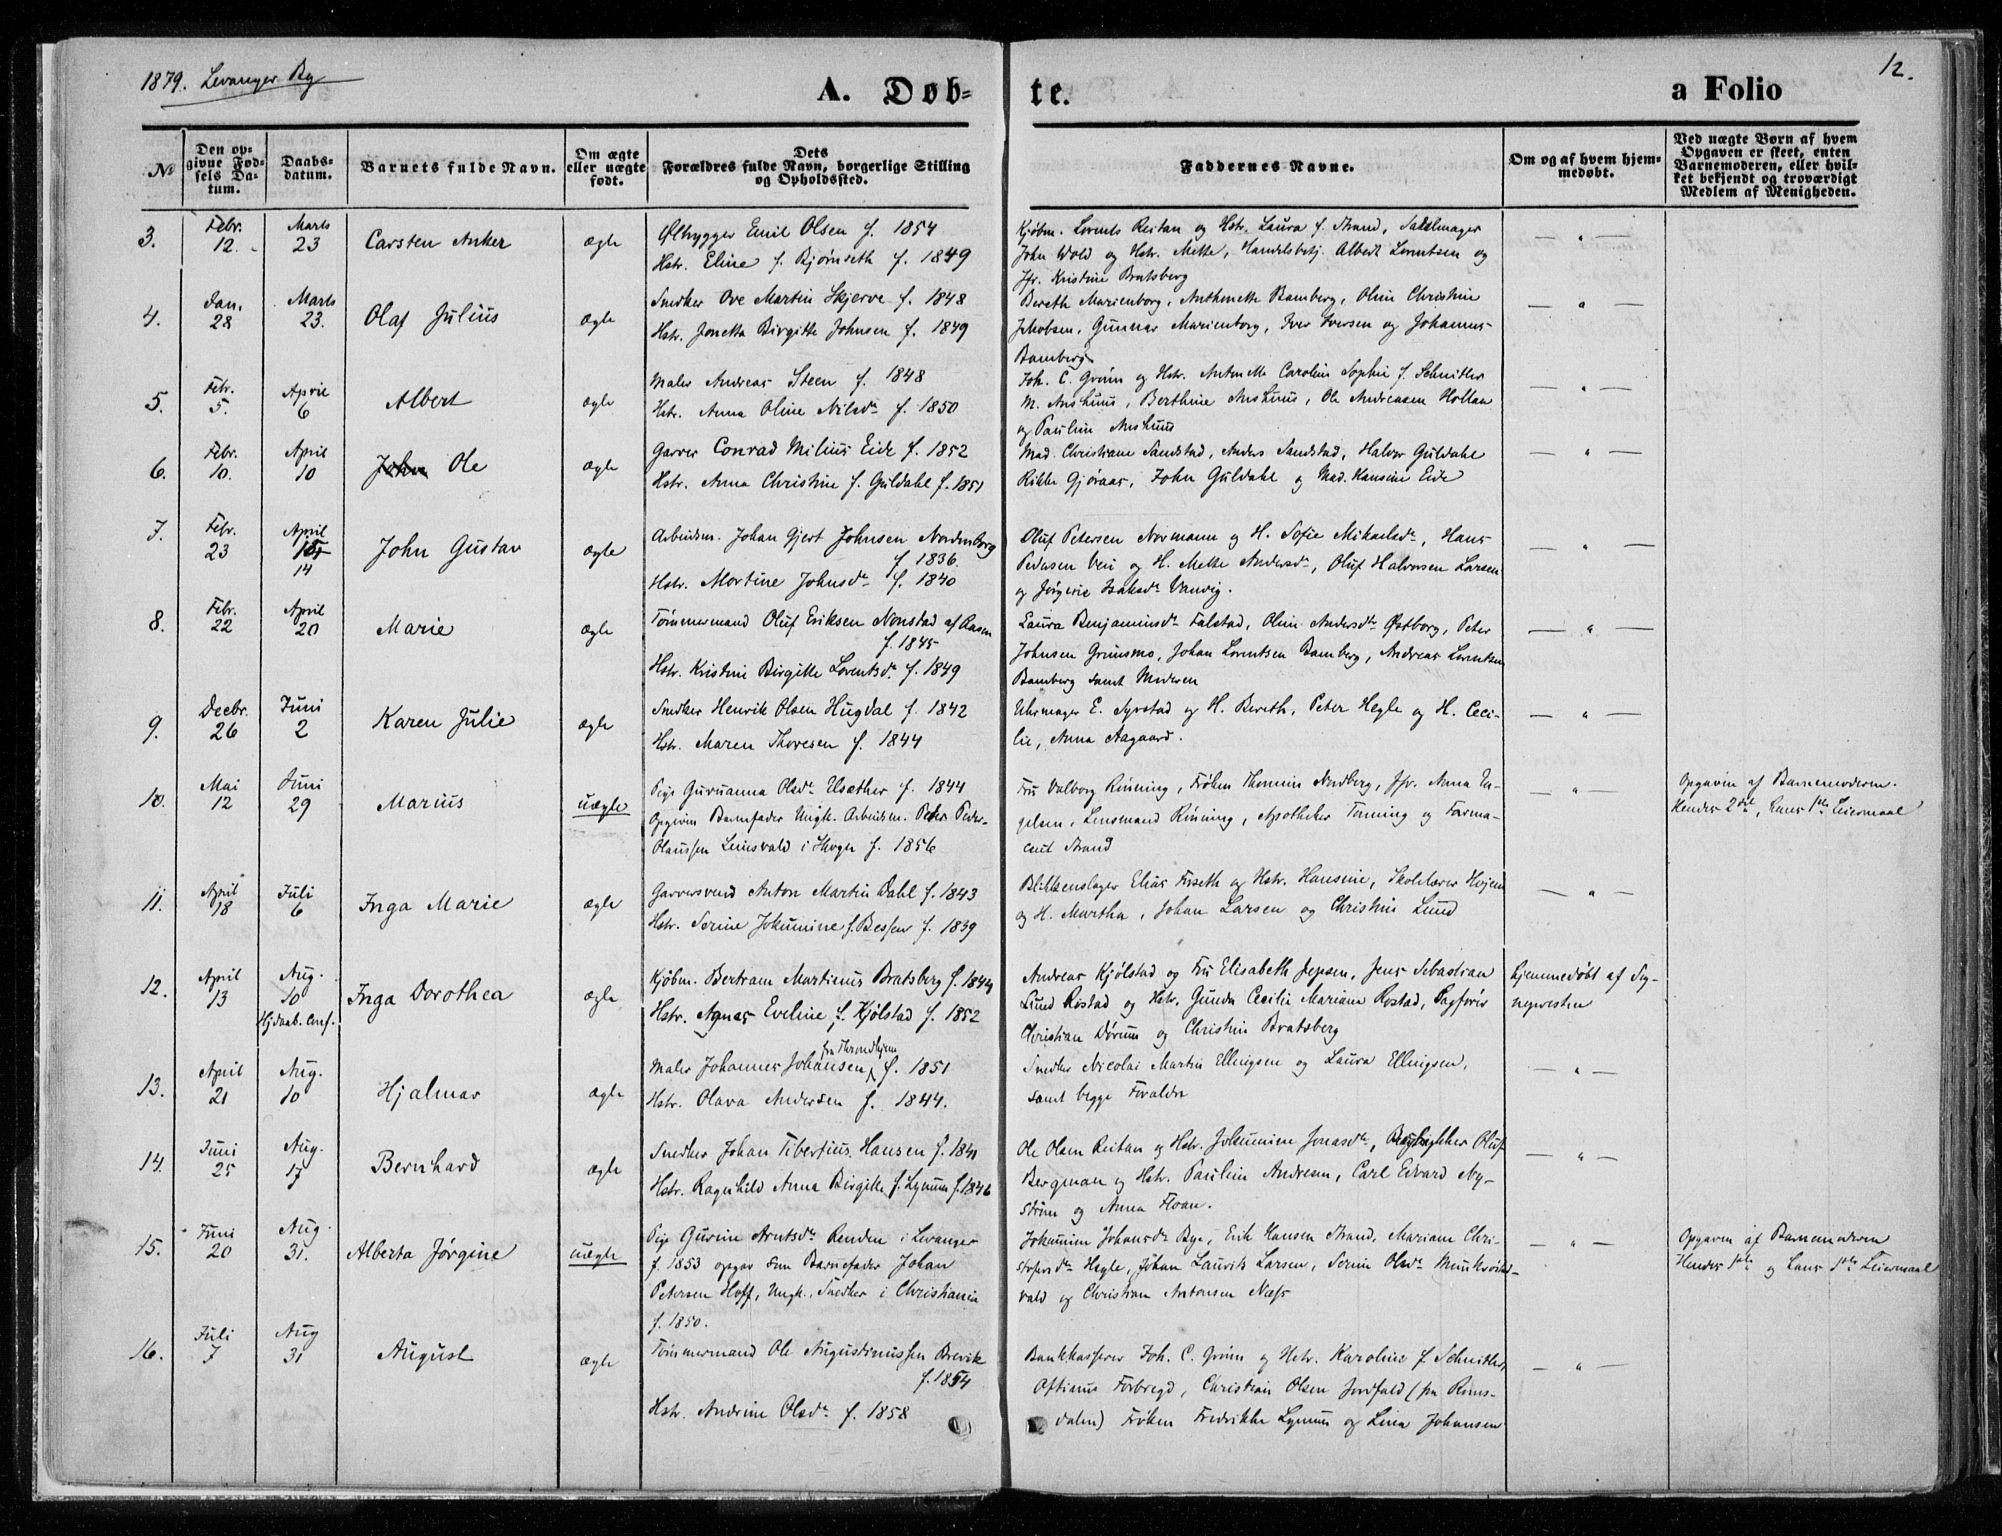 1879. Levanger By
12.
A. Døb-
te.
a Folio
№
Den op-
givne Fød-
sels Da-
tum.
Daabs-
datum.
Barnets fulde Navn.
Om ægte
eller uægte
født.
Dets
Forældres fulde Navn, borgerlige Stilling
og Opholdssted.
Faddernes Navne.
Om og af hvem hjem-
medøbt.
Ved uægte Børn af hvem
Opgaven er skeet, enten
Barnemoderen, eller hvil-
ket bekjendt og troværdigt
Medlem af Menigheden.
3.
Febr.
12.
Marts
23
Carsten Anker
ægte
Ølbrygger Emil Olsen f. 1854
Hstr. Eline f. Bjørnseth f. 1849
Kjøbm. Lorents Reitan og Hstr. Laura f. Strand, Sadelmager
John Wold og Hstr. Mette, Handelsbetj. Albert Lorentsen og
Jfr. Kristine Bratsberg
— " —
4.
Jan.
28
Marts
23.
Olaf Julius
ægte
Snedker Ove Martin Skjerve f. 1848
Hstr. Jonetta Birgitte Johnsen f. 1849
Bereth Marienborg, Anthonette Bamberg, Oline Christine
Jakobsen, Gunnar Marienborg, Iver Iversen og Johannes
Bamberg
— " —
5.
Febr.
5.
April
6
Albert
ægte
Maler Andreas Steen f. 1848
Hstr. Anna Oline Nilsdr f. 1850
Joh. C. Grøm og Hstr. Antonette Caroline Sophie f. Schnitler
M. Aushuus, Berthine Aushuus, Ole Andreasen Hollan
og Pauline Aushuus
— " —
6.
Febr.
10.
April
10
John Ole
ægte
Garver Conrad Milius Eide f. 1852
Hstr. Anna Christine f. Guldahl f. 1851
Mad. Christiane Sandstad, Anders Sandstad, Halvor Guldahl
Rikke Gjøraas, John Guldahl og Mad. Hansine Eide
— " —
7.
Febr.
23
April
15
14
John Gustav
ægte
Arbeidsm. Johan Gjert Johnsen Nordenborg
f. 1836.
Hstr. Martine Johnsdr f. 1840
Oluf Petersen Normann og H. Sofie Mikaelsdr, Hans
Pedersen Vei og H. Mette Andersdr, Oluf Halvorsen Larsen
og Jørgine Isaksdr Vanvig.
— " —
8.
Febr.
22
April
20
Marie
ægte
Tømmermand Oluf Eriksen Nonstad af Aasen
f. 1845
Hstr. Kristine Birgitte Lorentsdr f. 1849
Laura Benjaminsdr Falstad, Oline Andersdr Østborg, Peter
Johnsen Grunsmo, Johan Lorentsen Bamberg, Andreas Lorentsen
Bamberg samt Moderen
— " —
9.
Decbr.
26
Juni
2
Karen Julie
ægte
Snedker Henrik Olsen Hugdal f. 1842
Hstr. Maren Thoresen f. 1844
Uhrmager E. Syrstad og H. Bereth, Peter Hegle og H. Ceci-
lie, Anna Aagaard.
— " —
10.
Mai
12
Juni
29
Marius
uægte
Pige Guruanna Olsdr Ulsæther f. 1844
Opgiven Barnfader Ungk. Arbeidsm. Peter Peder-
Olaussen Leinsvald i Skogn f. 1856
Fru Valborg Rønning, Frøken Thomine Nordberg, Jfr. Anna En-
gelsen, Lensmand Rønning, Apotheker Tanning og Farma-
ceut Strand
— " —
Opgaven af Barnemoderen.
Hendes 2det, hans 1ste Leiermaal
11.
April
18
Juli
6
Inga Marie
ægte
Garversvend Anton Martin Dahl f. 1843
Hstr. Serine Jokumine f. Bessen f. 1839
Blikkenslager Elias Forseth og Hstr. Hansine, Skolelærer Hojem
og H. Martha, Johan Larsen og Christine Lund
— " —
12.
April
13
Aug.
10
Hjdaab. Conf.
Inga Dorothea
ægte
Kjøbm. Bertram Martinus Bratsberg f. 1844
Hstr. Agnes Eveline f. Kjølstad f. 1852
Andreas Kjølstad og Fru Elisabeth Jepsen, Jens Sebastian
Lund Rostad og Hstr. Gunda Cecilie Mariane Rostad, Fagforv.
Christian Dørum og Christine Bratsberg
hjemmedøbt af Sog-
nepresten
13.
April
21
Aug.
10
Hjalmar
ægte
fra Throndhjem
Maler Johannes Johansen, f. 1851
Hstr. Olava Andersen f. 1844.
Snedker Nicolai Martin Ellingsen og Laura Ellingsen,
samt begge Forældre
— " —
14.
Juni
25
Aug.
17
Bernhard
ægte
Snedker Johan Tibertius Hansen f. 1841
Hstr. Ragnhild Anna Birgitte f. Lynum f. 1846
Ole Olsen Reitan og Hstr. Jokumine Jonasdr, Bogtrykker Oluf
Bergman og Hstr. Pauline Andresen, Carl Edvard Ny-
strøm og Anna Floan.
— " —
15.
Juni
20
Aug.
31.
Alberta Jørgine
uægte
Pige Gurine Arntsdr Renden i Levanger
f. 1853 opgav som Barnefader Johan
Petersen Hoff, Ungk., Snedker i Christiania
f. 1850.
Jokumine Johansdr Bye, Erik Hansen Strand, Mariane Chri-
stofersdr Hegle, Johan Lauvik Larsen, Serine Olsdr Munkroits-
vald og Christian Antonsen Næss
— " —
Opgaven af Barnemoderen
Hendes 1ste og hans 1ste Leiermaal
16.
Juli
7
Aug
31
August
ægte
Tømmermand Ole Augustinussen Brevik
f. 1854
Hstr. Andrine Olsdr f. 1858
Bankkasserer Joh. C. Grøm og Hstr. Karoline f. Schnitler,
Oftinus Forbregd, Christian Olsen Jordfald (fra Roms-
dalen) Frøken Fredrikke Lynum og Lina Johansen
— " —